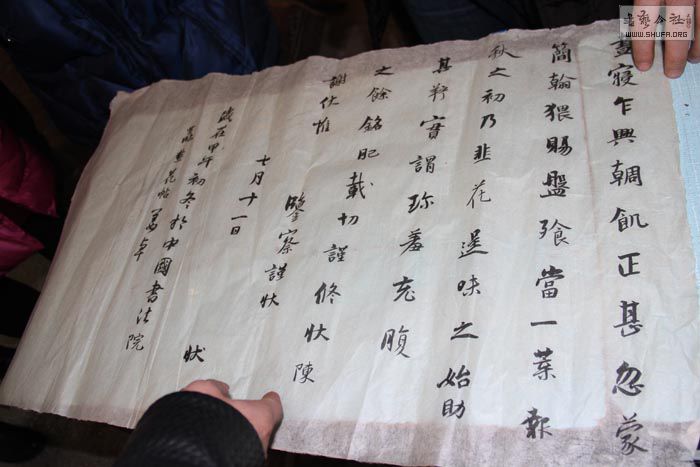 晝寢乍興輖飢正甚忽蒙
簡翰猥賜盤飧當一葉報
秋之初乃韭花逞味之始助
其羜實謂珍羞充腹
之餘銘肌載切謹修狀陳
謝伏惟
鑒察謹狀
七月十一日
狀
歲在甲午初冬於中國書法院
臨韭花帖 萬卓
書藝公社
WWW.SHUFA.ORG